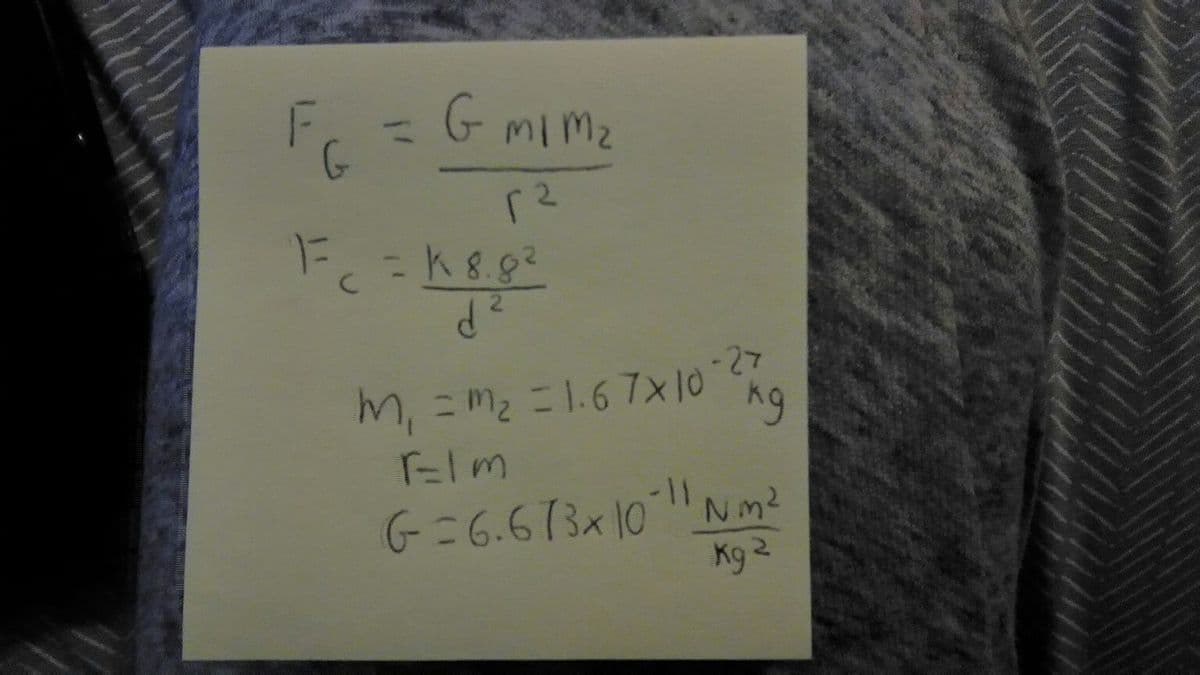 F_G = G m1 m₂ / r²
F_c = K 8.8² / d²
m₁ = m₂ = 1.67x10⁻²⁷ kg
r=1m
G=6.673x10⁻¹¹ Nm²/Kg²